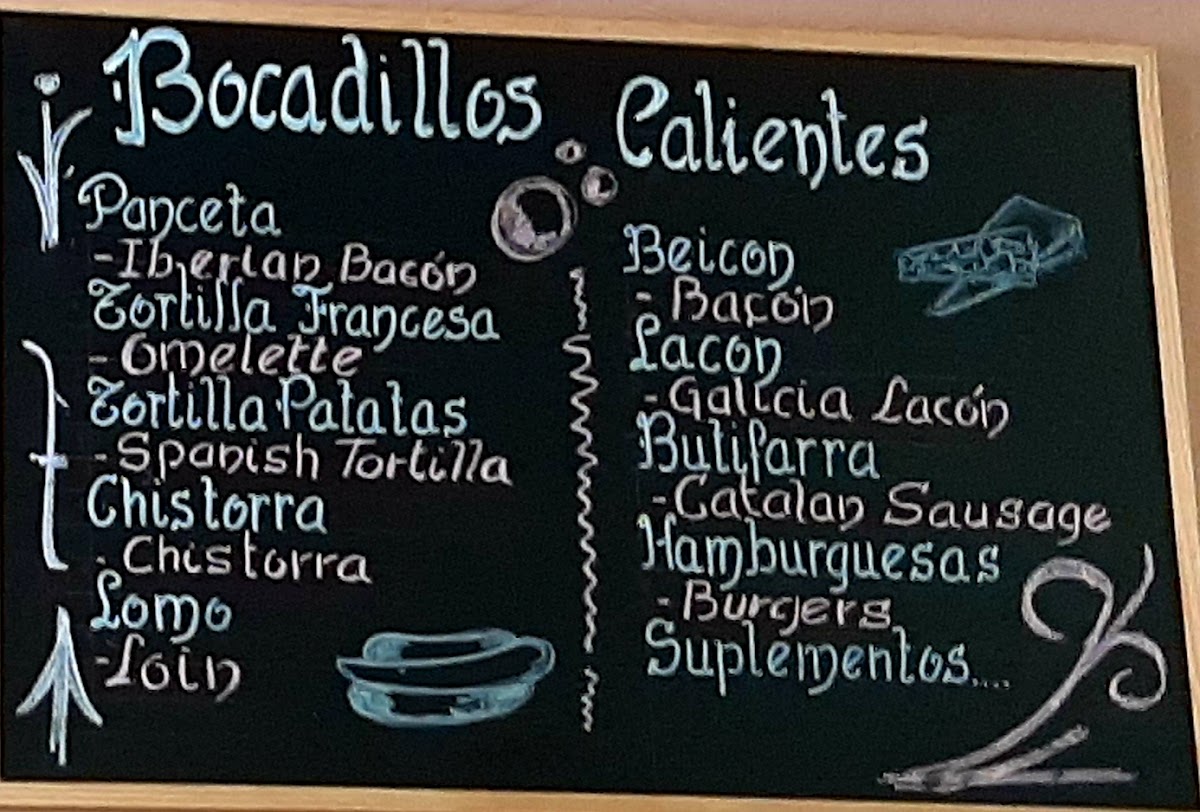 Bocadillos Calientes
Panceta
-Iberian Bacón
Tortilla Francesa
-Omelette
Tortilla Patatas
-Spanish Tortilla
Chistorra
-Chistorra
Lomo
-Loin
Beicon
-Bacón
Lacon
-Galicia Lacón
Butifarra
-Catalan Sausage
Hamburguesas
-Burgers
Suplementos....